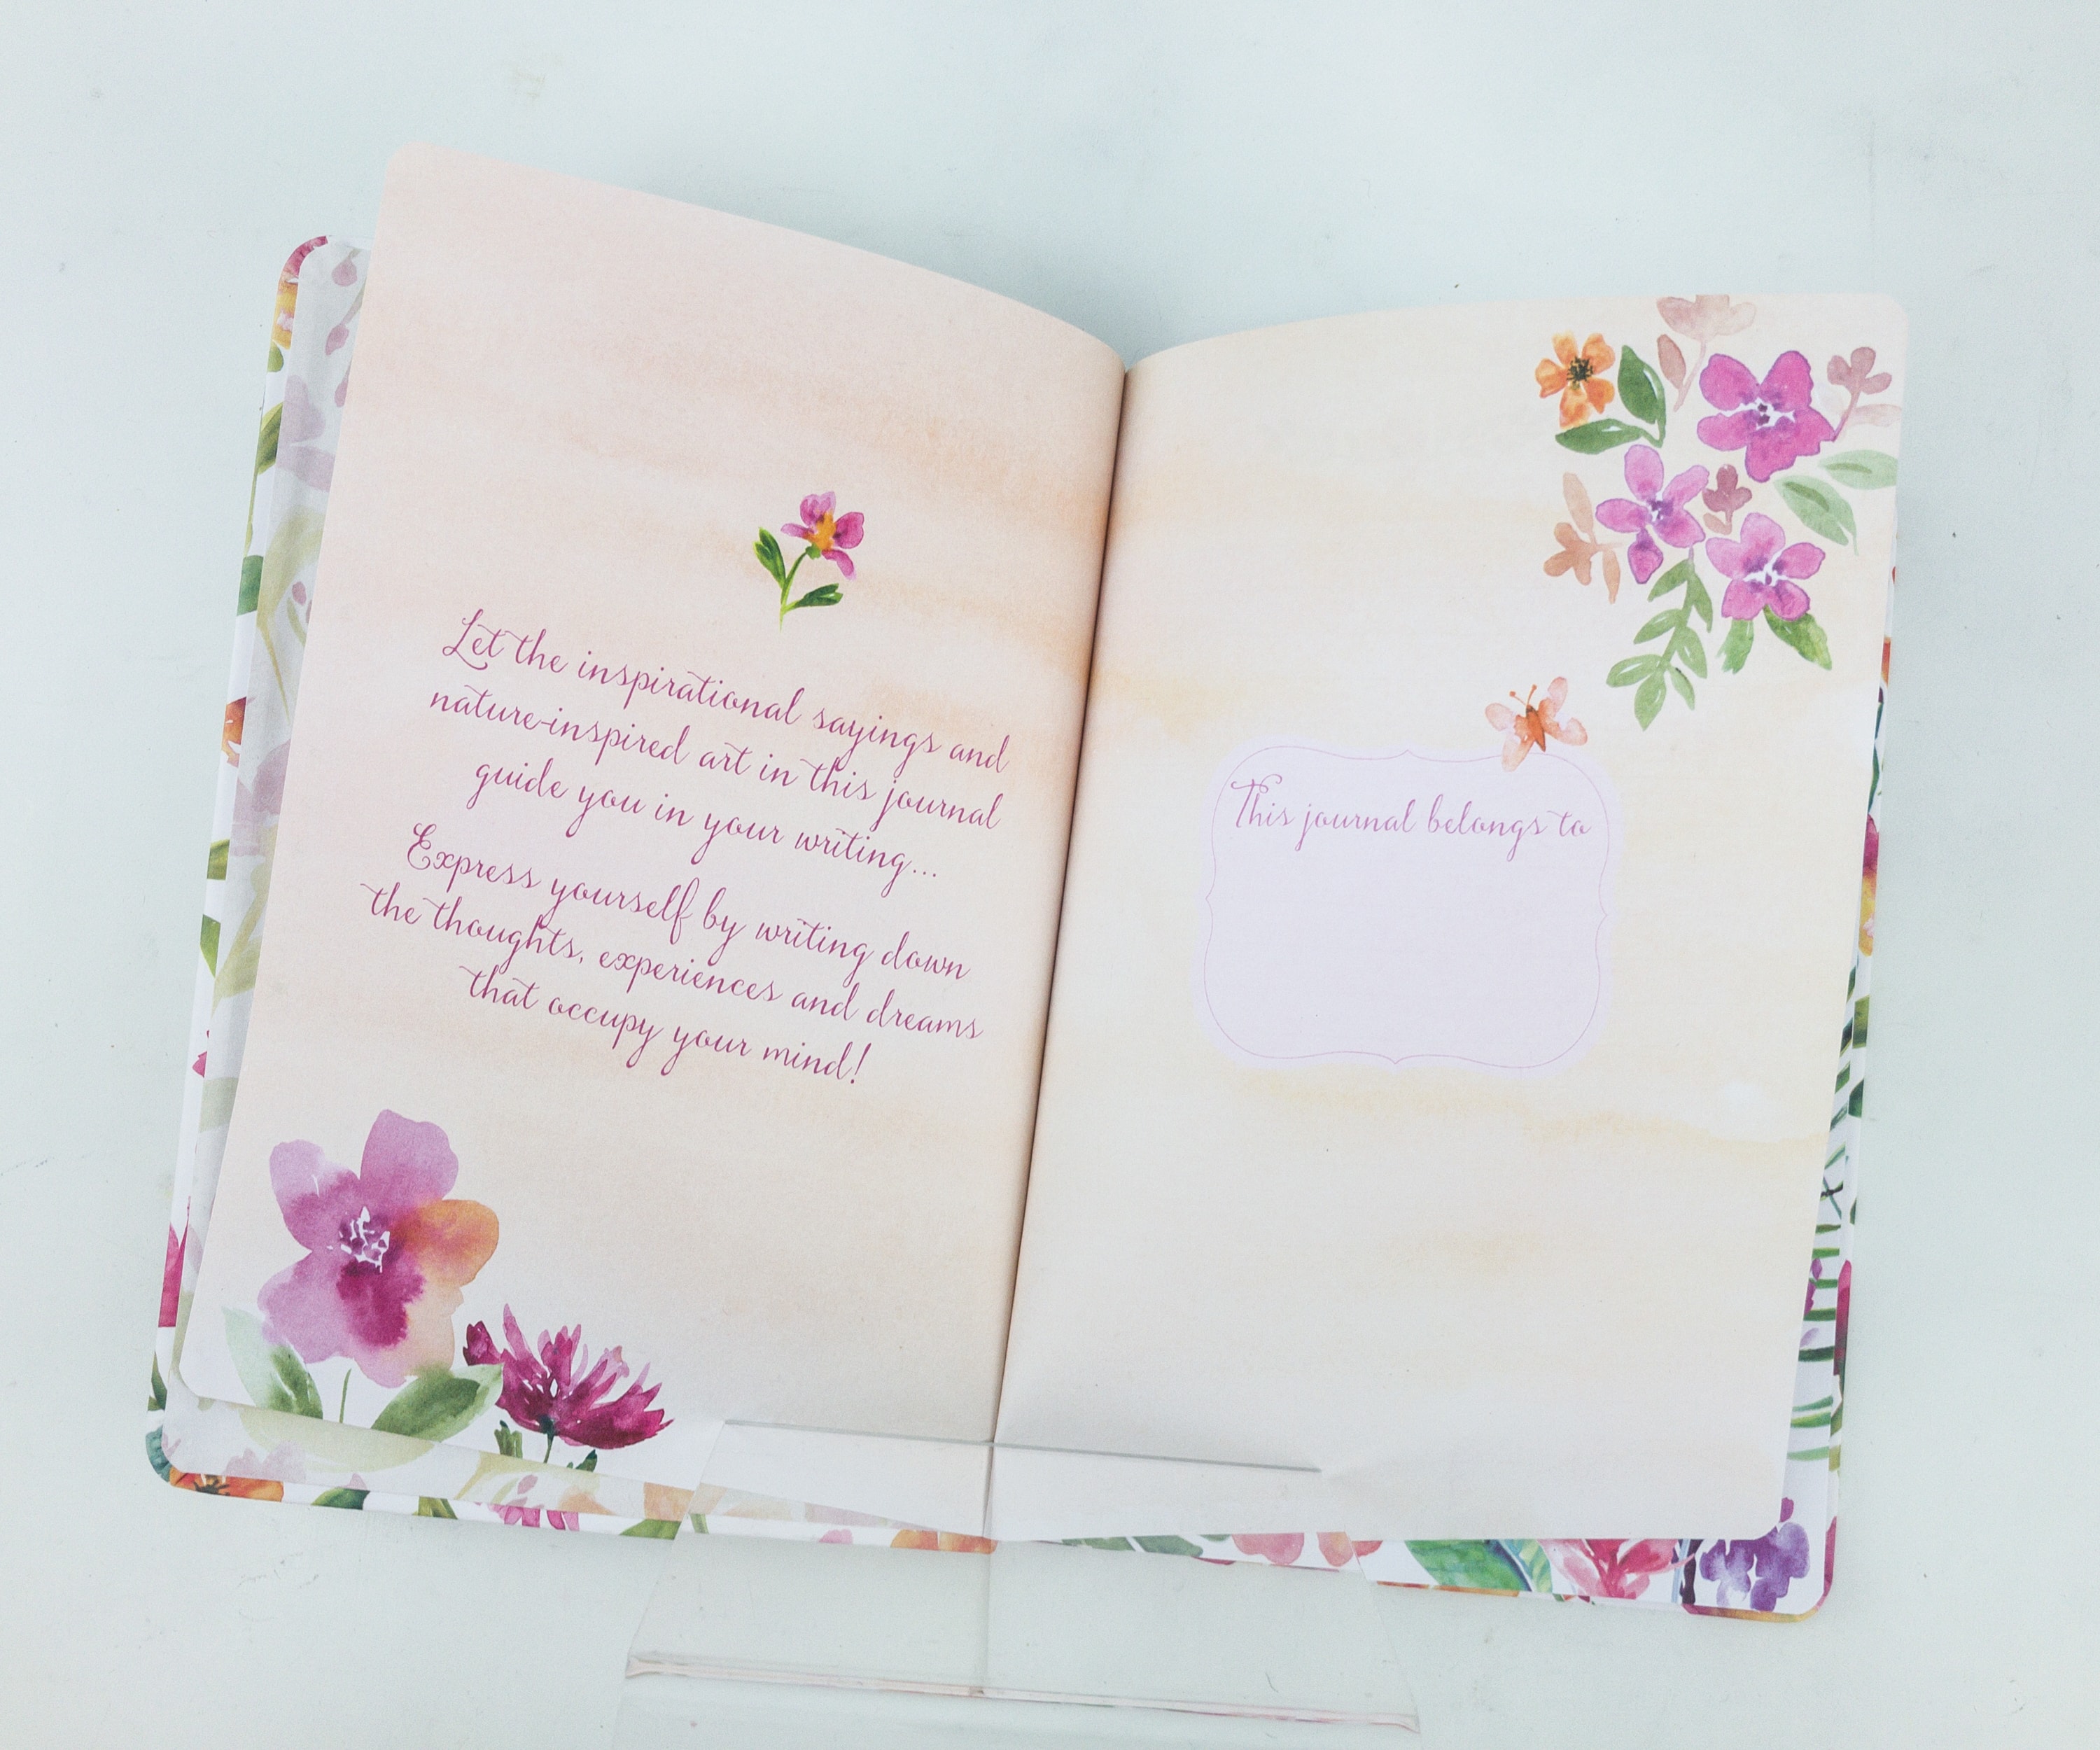 Let the inspirational sayings and
nature-inspired art in this journal
guide you in your writing...
Express yourself by writing down
the thoughts, experiences and dreams
that occupy your mind!
This journal belongs to